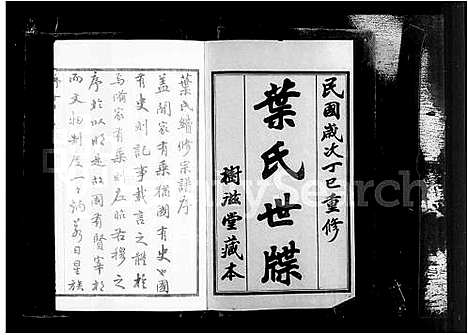 民國歲次丁巳重修
葉氏世牒
樹滋堂藏本
葉氏續修宗譜序
蓋聞家有乗猶國有史國
有史則記事載言之體於
焉備家有乗則左昭右穆之
序於以明
而文物制度一一炳若日星族